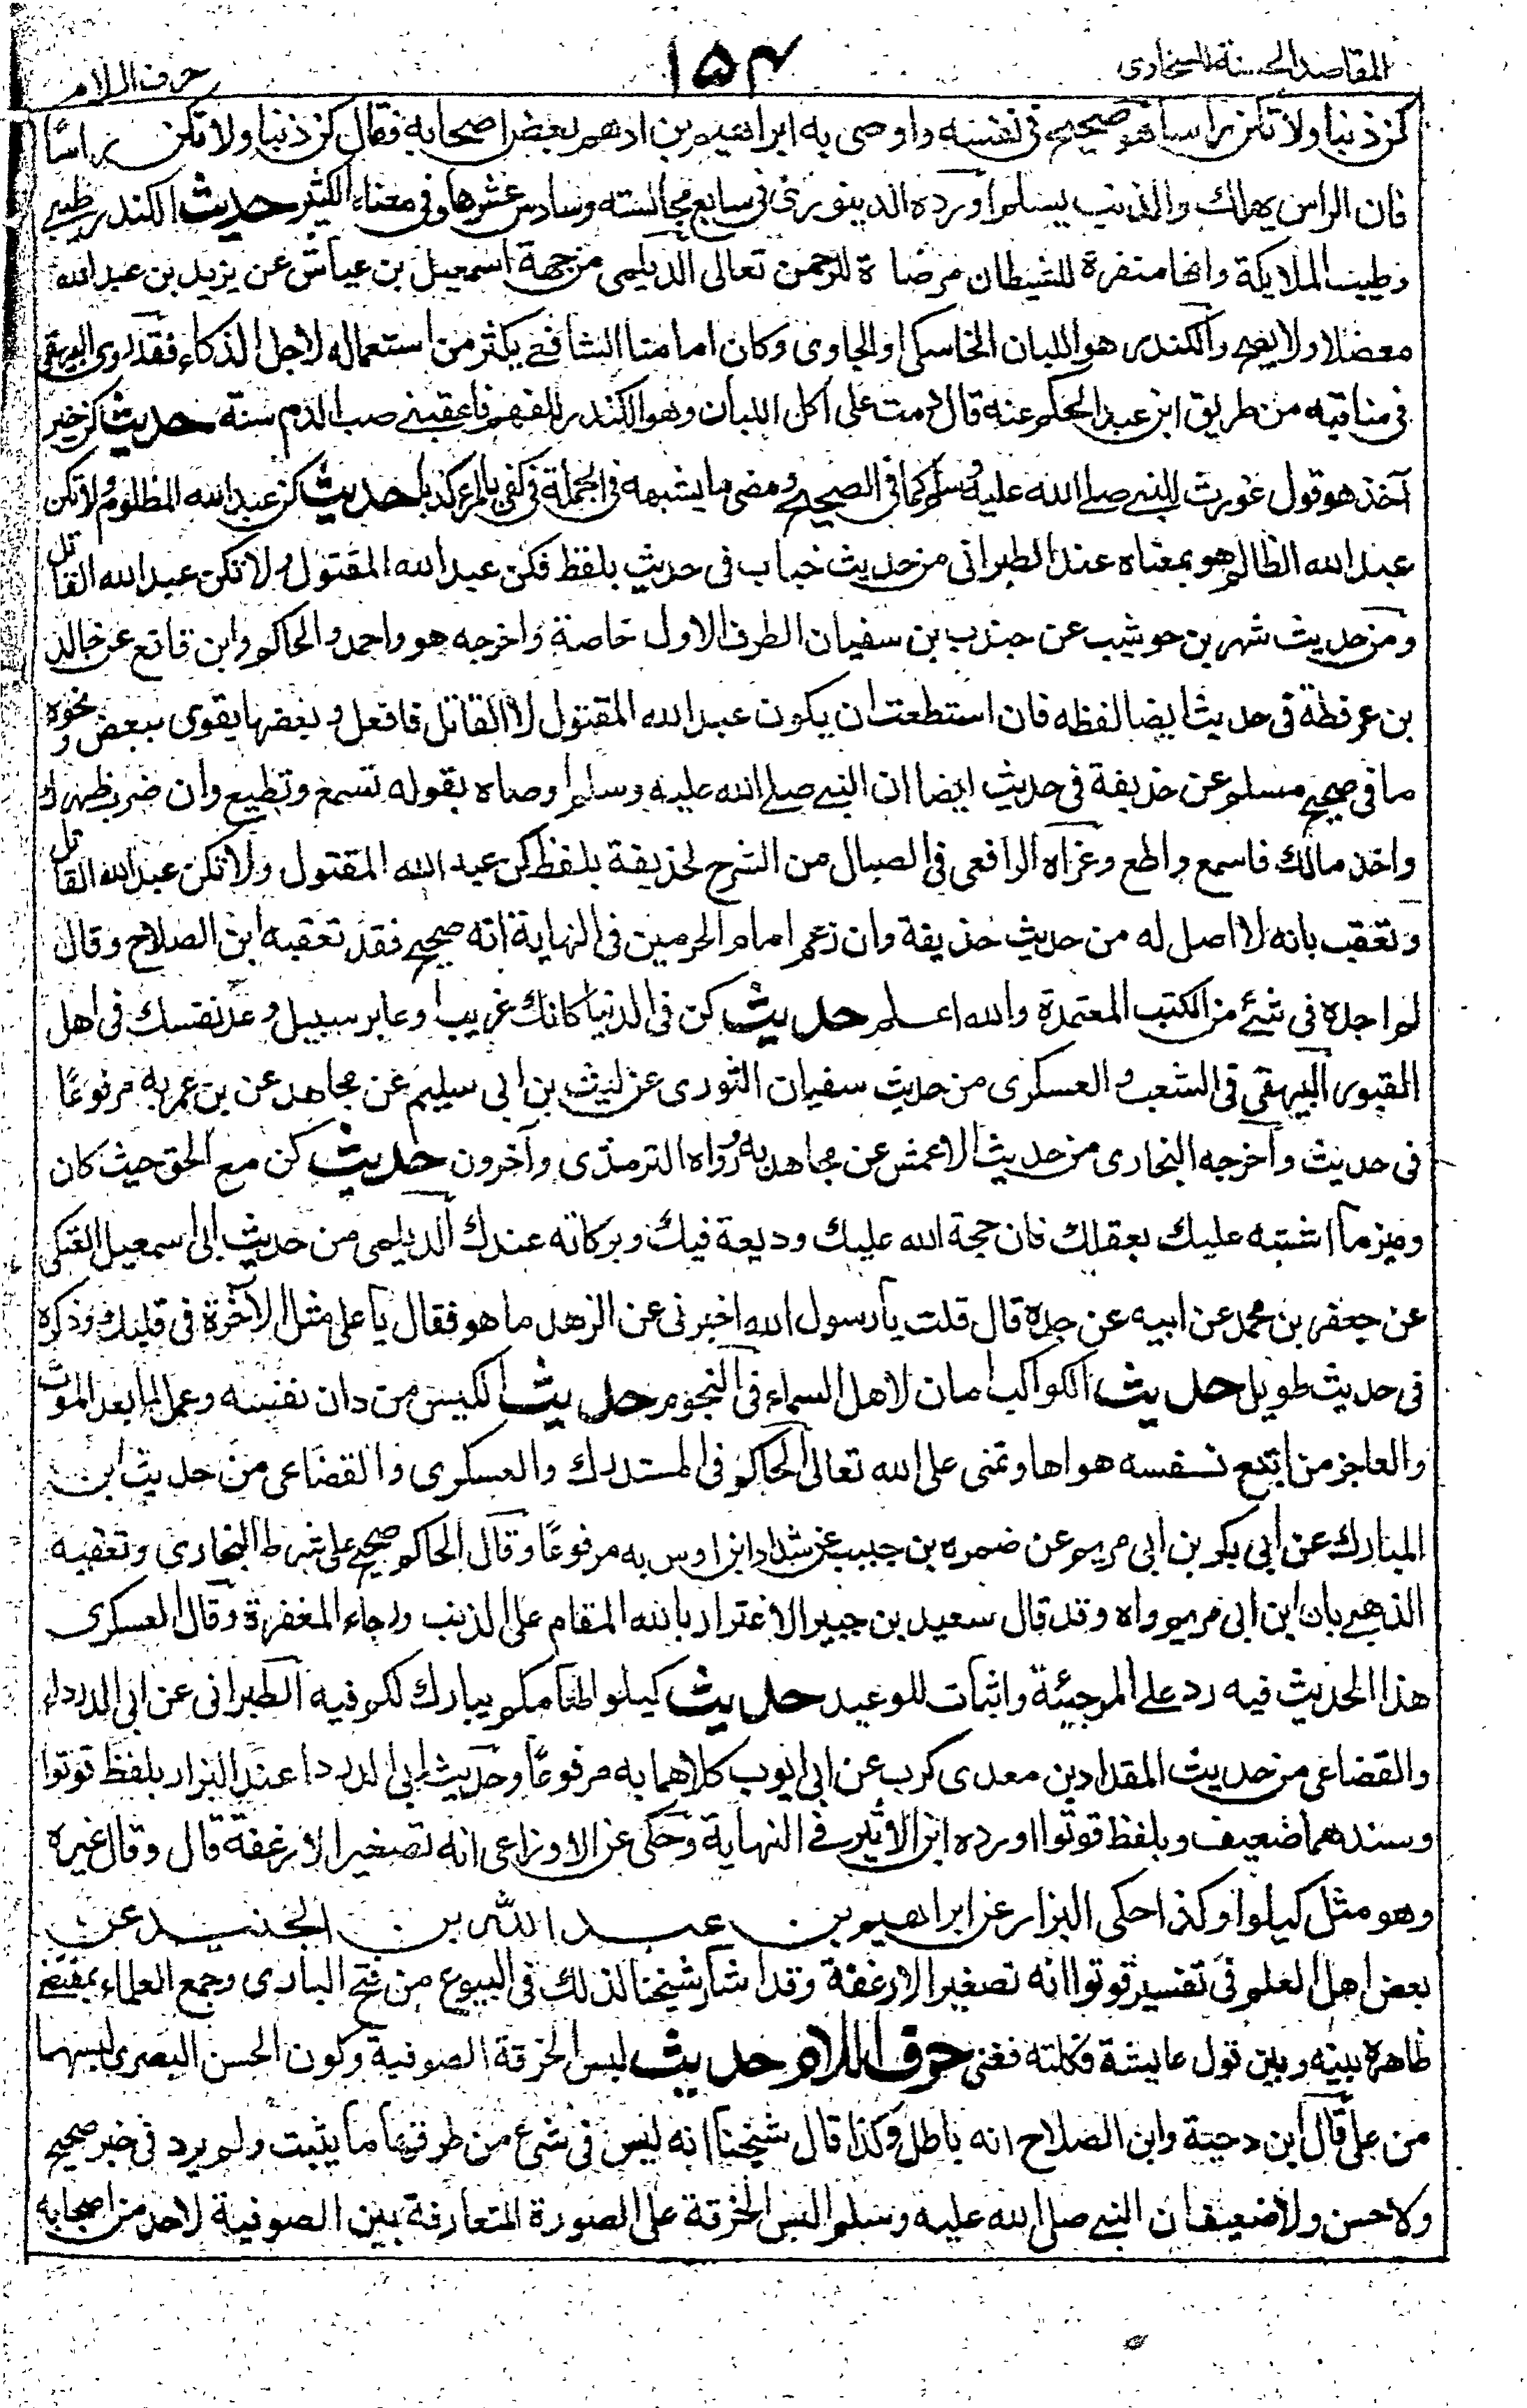 المقاصد الحسنة للسخاوى ١٥٤ حرف اللام
كن ذنبا ولا تكن راسا هو صحيح فى نفسه واوصى به ابراهيم بن ادهم بعض اصحابه فقال كن ذنبا ولا تكن راسا
فان الراس يهلك والذنب يسلم اورده الدينورى فى سابع مجالسته وسادس عشرها وفى معناه الكثير حديث الكندر طيبى
وطيب الملايكة وانها منفرة للشيطان مرضاة للرحمن تعالى الديلمى من جهة اسمعيل بن عياش عن يزيد بن عبد الله
معضلا ولا يصح والكندر هو اللبان الخاسكى او الجاوى وكان امامنا الشافعى يكثر من استعماله لاجل الذكاء فقد روى البيهقى
فى مناقبه من طريق ابن عبد الحكم عنه قال دمت على اكل اللبان وهو الكندر للفهم فاعقبنى صب الدم سنة حديث كن خير
آخذ هو قول غورث للنبى صلے الله عليه وسلم كما فى الصحيح ومضى ما يشبهه فى الجملة فى كفى بالمرء كذبا حديث كن عبد الله المظلوم ولا تكن
عبد الله الظالم هو بمعناه عند الطبرانى من حديث خباب فى حديث بلفظ فكن عبد الله المقتول ولا تكن عبد الله القاتل
ومن حديث شهر بن حوشب عن جندب بن سفيان الطرف الاول خاصة واخرجه هو واحمد والحاكم وابن قانع عن خالد
بن عرفطة فى حديث ايضا لفظه فان استطعت ان يكون عبد الله المقتول لا القاتل فافعل وبعضها يقوى ببعض ونحوه
ما فى صحيح مسلم عن حذيفة فى حديث ايضا ان النبى صلے الله عليه وسلم اوصاه بقوله تسمع وتطيع وان ضرب ظهرك
واخذ مالك فاسمع واطع وعزاه الرافعى فى الصيال من الشرح لحذيفة بلفظ كن عبد الله المقتول ولا تكن عبد الله القاتل
وتعقب بانه لا اصل له من حديث حذيفة وان زعم امام الحرمين فى النهاية انه صحيح فقد تعقبه ابن الصلاح وقال
لم اجده فى شئ من الكتب المعتمدة والله اعلم حديث كن فى الدنيا كانك غريب او عابر سبيل وعد نفسك فى اهل
القبور البيهقى فى الشعب والعسكرى من حديث سفيان الثورى عن ليث بن ابى سليم عن مجاهد عن بن عمر به مرفوعًا
فى حديث واخرجه البخارى من حديث الاعمش عن مجاهد به ورواه الترمذى وآخرون حديث كن مع الحق حيث كان
وميز ما اشتبه عليك بعقلك فان حجة الله عليك وديعة فيك وبركاته عندك الديلمى من حديث ابى اسمعيل العتكى
عن جعفر بن محمد عن ابيه عن جده قال قلت يا رسول الله اخبرنى عن الزهد ما هو فقال يا على مثل الآخرة فى قلبك وذكره
فى حديث طويل حديث الكواكب امان لاهل السماء فى النجوم حديث الكيس من دان نفسه وعمل لما بعد الموت
والعاجز من اتبع نفسه هواها وتمنى على الله تعالى الحاكم فى المستدرك والعسكرى والقضاعى من حديث ابن
المبارك عن ابى بكر بن ابى مريم عن ضمره بن حبيب عن شداد ابن اوس به مرفوعًا وقال الحاكم صحيح على شرط البخارى وتعقبه
الذهبى بان ابن ابى مريم واه وقد قال سعيد بن جبير الاغترار بالله المقام على الذنب ورجاء المغفرة وقال العسكرى
هذا الحديث فيه رد على المرجئة واثبات للوعيد حديث كيلوا طعامكم يبارك لكم فيه الطبرانى عن ابى الدرداء
والقضاعى من حديث المقداد بن معدى كرب عن ابى ايوب كلاهما به مرفوعًا وحديث ابى الدردا عند البزار بلفظ قوتوا
وسندهما ضعيف وبلفظ قوتوا اورده ابن الاثير فى النهاية وحكى عن الاوزاعى انه تصغير الارغفة قال وقال غيره
وهو مثل كيلوا وكذا حكى البزار عن ابراهيم بن عبد الله بن الجنيد عن
بعض اهل العلم فى تفسير قوتوا انه تصغير الارغفة وقد اشار شيخنا لذلك فى البيوع من فتح البارى وجمع العلماء بمقتضى
ظاهره بينه وبين قول عايشة فكلته ففنى حرف اللام حديث لبس الخرقة الصوفية وكون الحسن البصرى لبسها
من على قال ابن دحية وابن الصلاح انه باطل وكذا قال شيخنا انه ليس فى شئ من طرقها ما يثبت ولم يرد فى خبر صحيح
ولا حسن ولا ضعيف ان النبى صلى الله عليه وسلم البس الخرقة على الصورة المتعارفة بين الصوفية لاحد من اصحابه